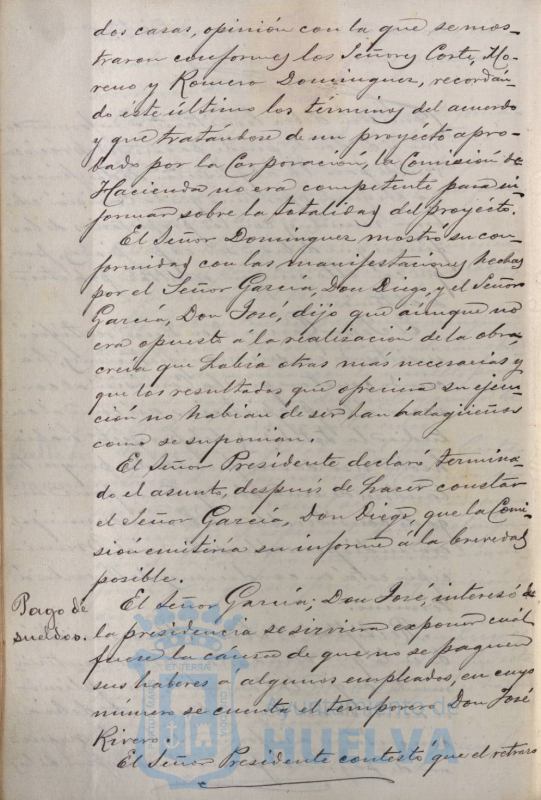 dos casas, opinión con la que se mos-
traron conformes los Señores Corte, Mo-
reno y Romero Dominguez, recordán-
do este último los términos del acuerdo
y que tratándose de un proyecto apro-
bado por la Corporación, la Comisión de
Hacienda no era competente para in-
formar sobre la totalidad del proyecto.
El Señor Dominguez mostró su con-
formidad con las manifestaciones hechas
por el Señor García, Don Diego, y el Señor
García, Don José, dijo que aunque no
era opuesto a la realización de la obra,
creia que habia otras más necesarias y
que los resultados que ofreciera su ejecu-
ción no habian de ser tan halagüeños
como se suponian.
El Señor Presidente declaró termina-
do el asunto, después de hacer constar
el Señor García, Don Diego, que la Comi-
sión emitiria su informe á la brevedad
posible.
Pago de
sueldos.
El Señor García, Don José, interesó de
la presidencia se sirviera exponer cuál
fuere la causa de que no se paguen
sus haberes a algunos empleados, en cuyo
número se cuenta el temporero Don José
Rivero.
El Señor Presidente contestó que el retraso
Ayuntamiento de
HUELVA